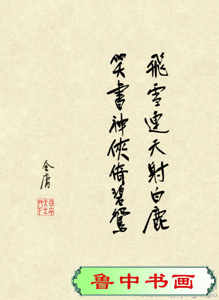 飛雪連天射白鹿
笑書神俠倚碧鴛
金庸
鲁中书画